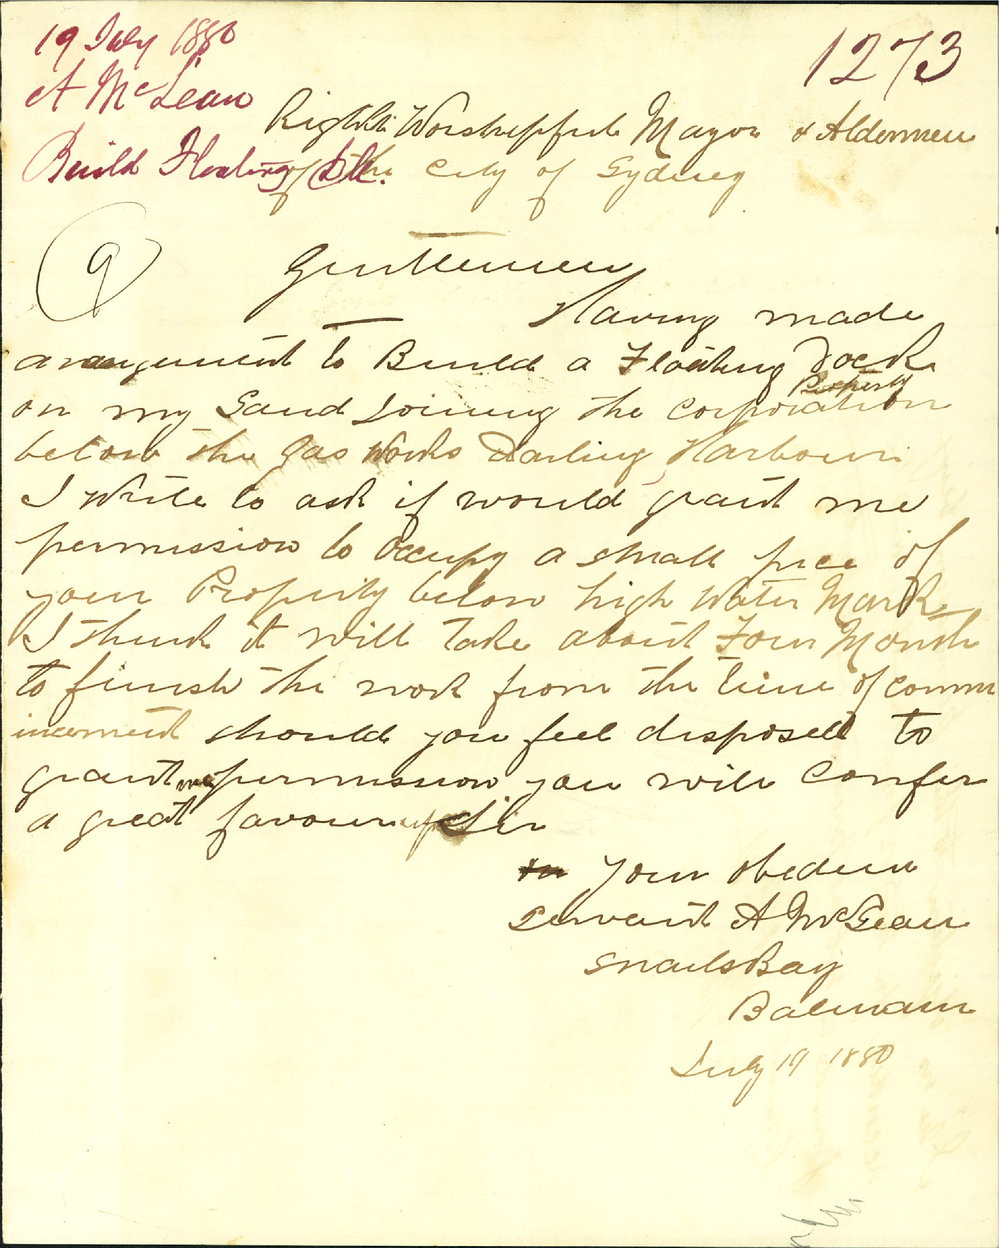 19 July 1880
1273
A McLean
Build Floating Dk.
Right Worshipful Mayor & Aldermen
of the City of Sydney
9
Gentlemen
Having made
arangement to Build a Floating Dock
on my Land Joining the Corporation Property
below the Gas Works Darling Harbour
I write to ask if would grant me
permission to occupy a small pece of
your Property below high Water Mark
I think it will take about Four Month
to finish the work from the time of comm
incement should you feel disposed to
grant me permission you will Confer
a great favour Sir
Your obedien
Servant A McLean
Snails Bay
Balmain
July 19 1880